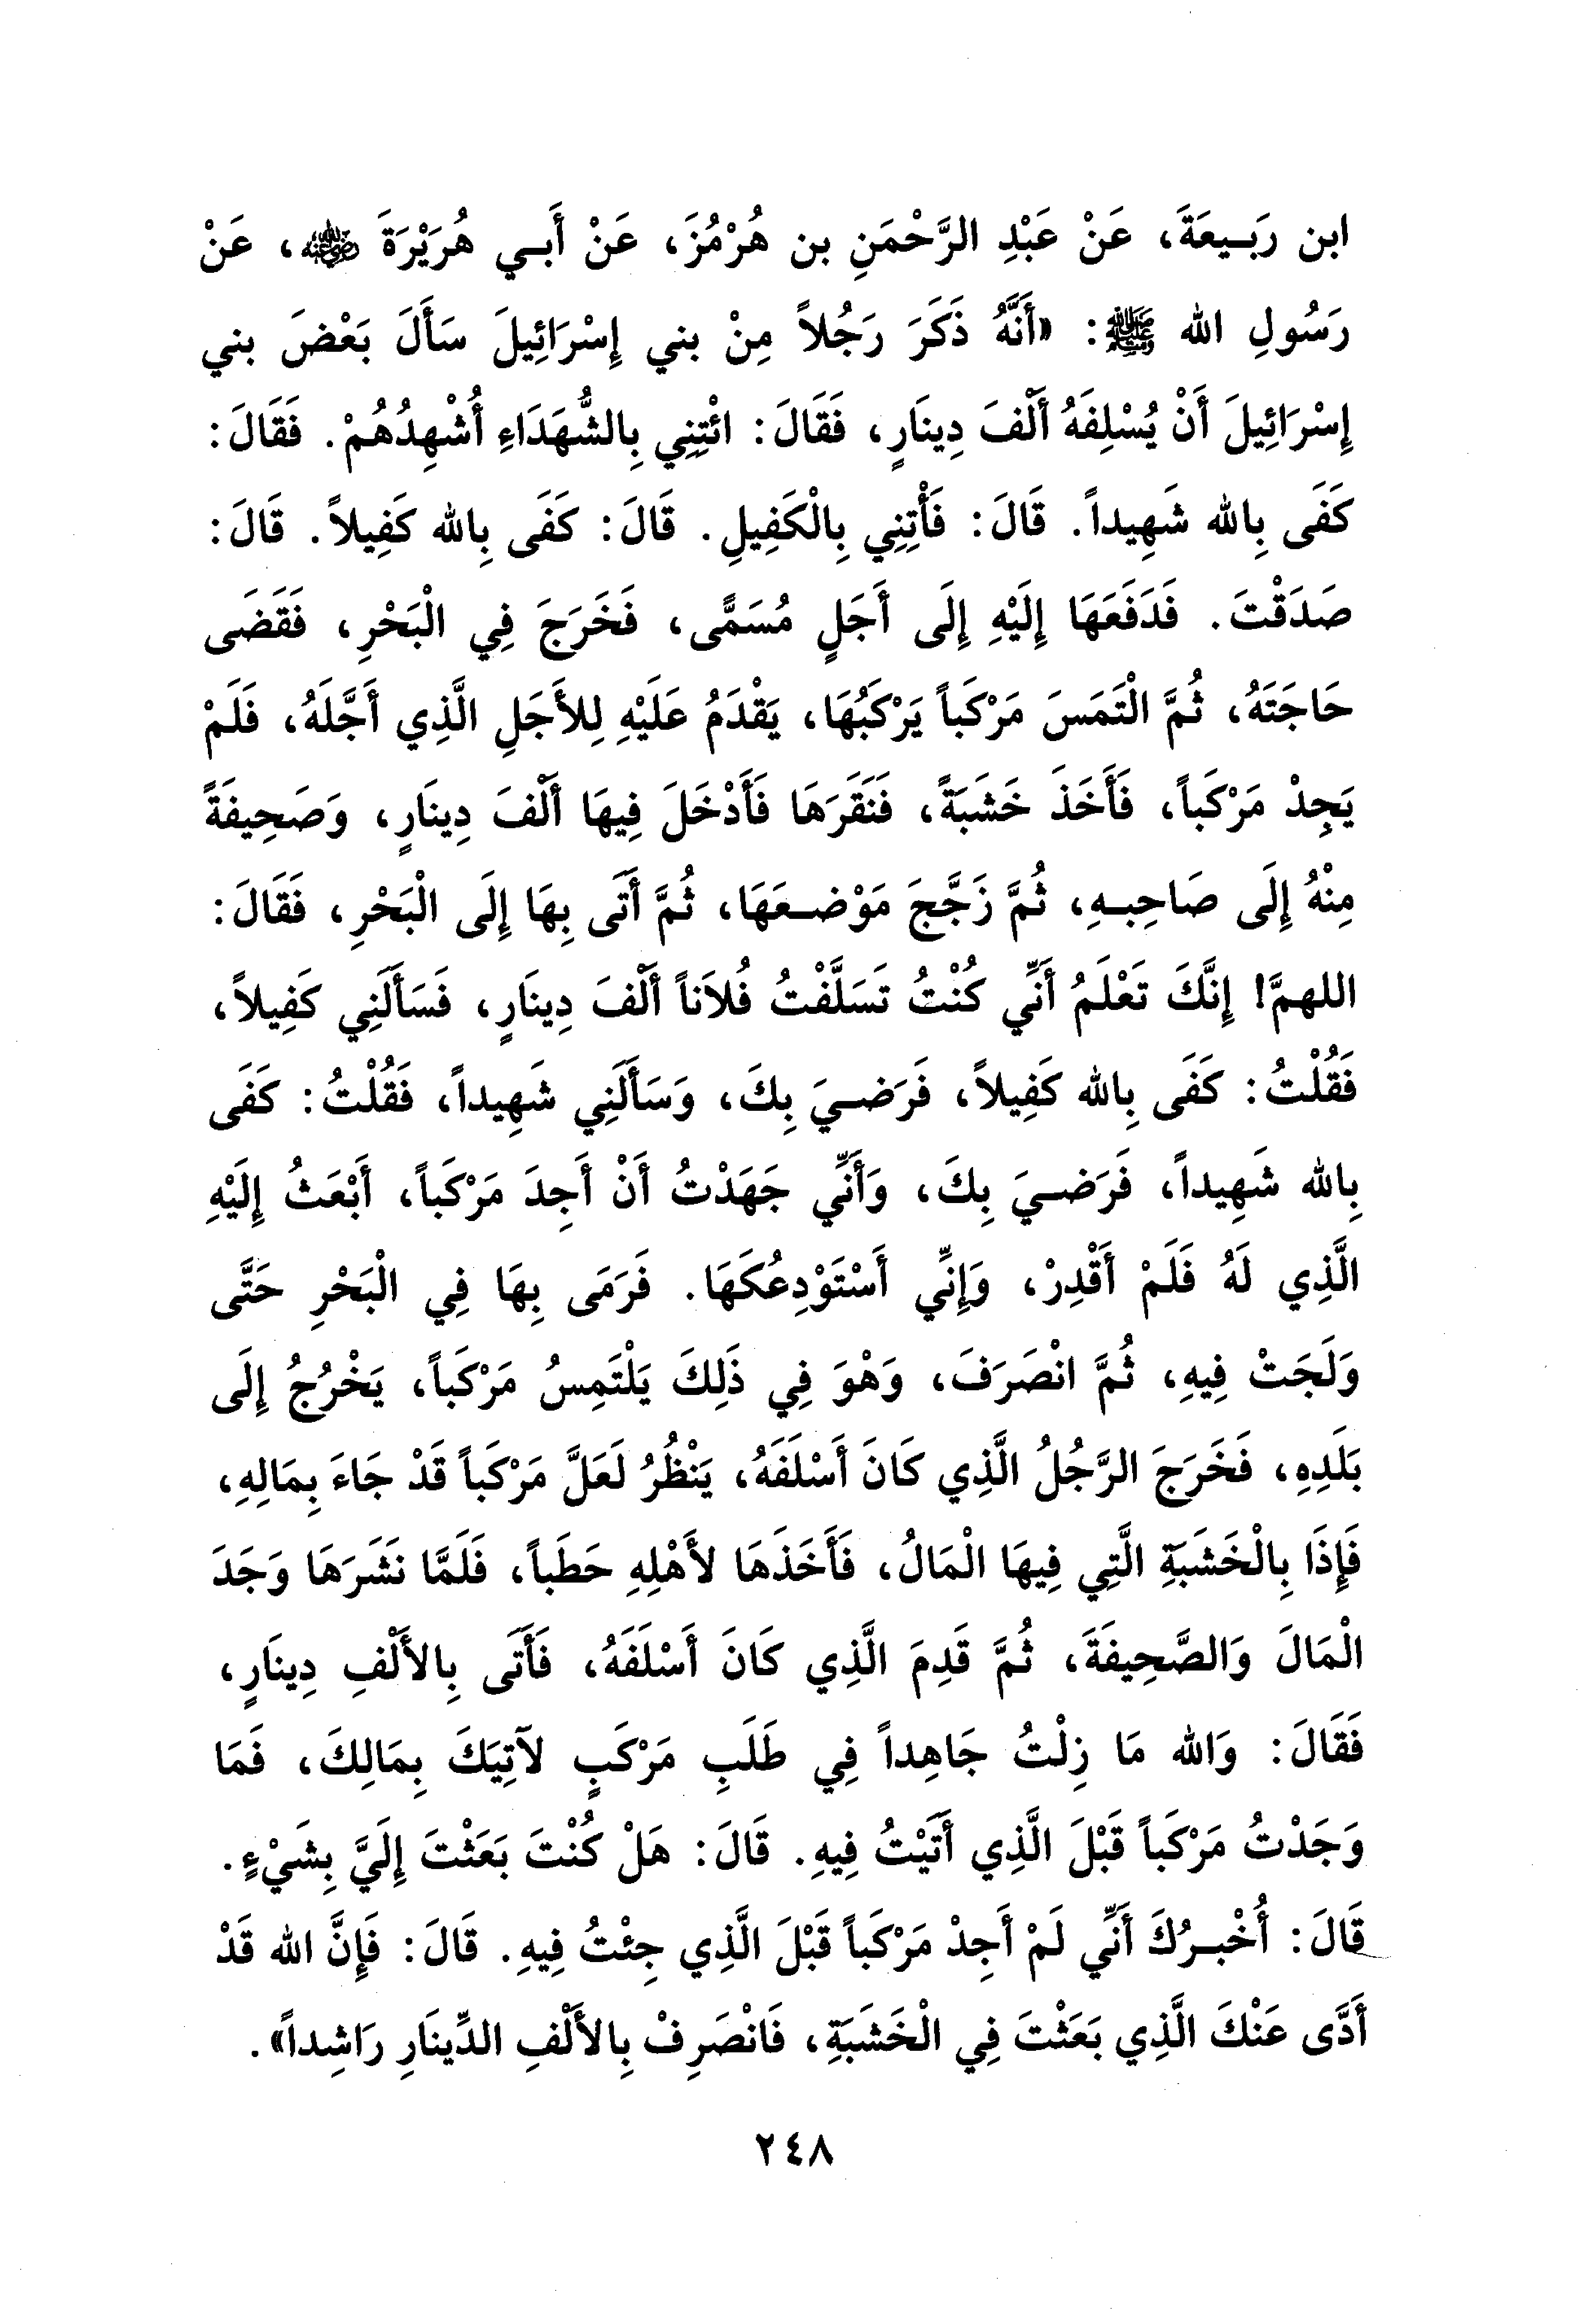 ابن رَبِيعَةَ، عَنْ عَبْدِ الرَّحْمَنِ بن هُرْمُزَ، عَنْ أَبِي هُرَيْرَةَ رضي الله عنه، عَنْ
رَسُولِ الله ﷺ: «أَنَّهُ ذَكَرَ رَجُلاً مِنْ بني إِسْرَائِيلَ سَأَلَ بَعْضَ بني
إِسْرَائِيلَ أَنْ يُسْلِفَهُ أَلْفَ دِينَارٍ، فَقَالَ: ائْتِنِي بِالشُّهَدَاءِ أُشْهِدُهُمْ. فَقَالَ:
كَفَى بِالله شَهِيداً. قَالَ: فَأْتِنِي بِالْكَفِيلِ. قَالَ: كَفَى بِالله كَفِيلاً. قَالَ:
صَدَقْتَ. فَدَفَعَهَا إِلَيْهِ إِلَى أَجَلٍ مُسَمًّى، فَخَرَجَ فِي الْبَحْرِ، فَقَضَى
حَاجَتَهُ، ثُمَّ الْتَمَسَ مَرْكَباً يَرْكَبُهَا، يَقْدَمُ عَلَيْهِ لِلأَجَلِ الَّذِي أَجَّلَهُ، فَلَمْ
يَجِدْ مَرْكَباً، فَأَخَذَ خَشَبَةً، فَنَقَرَهَا فَأَدْخَلَ فِيهَا أَلْفَ دِينَارٍ، وَصَحِيفَةً
مِنْهُ إِلَى صَاحِبِهِ، ثُمَّ زَجَّجَ مَوْضِعَهَا، ثُمَّ أَتَى بِهَا إِلَى الْبَحْرِ، فَقَالَ:
اللهمَّ! إِنَّكَ تَعْلَمُ أَنِّي كُنْتُ تَسَلَّفْتُ فُلاَناً أَلْفَ دِينَارٍ، فَسَأَلَنِي كَفِيلاً،
فَقُلْتُ: كَفَى بِالله كَفِيلاً، فَرَضِيَ بِكَ، وَسَأَلَنِي شَهِيداً، فَقُلْتُ: كَفَى
بِالله شَهِيداً، فَرَضِيَ بِكَ، وَأَنِّي جَهَدْتُ أَنْ أَجِدَ مَرْكَباً، أَبْعَثُ إِلَيْهِ
الَّذِي لَهُ فَلَمْ أَقْدِرْ، وَإِنِّي أَسْتَوْدِعُكَهَا. فَرَمَى بِهَا فِي الْبَحْرِ حَتَّى
وَلَجَتْ فِيهِ، ثُمَّ انْصَرَفَ، وَهْوَ فِي ذَلِكَ يَلْتَمِسُ مَرْكَباً، يَخْرُجُ إِلَى
بَلَدِهِ، فَخَرَجَ الرَّجُلُ الَّذِي كَانَ أَسْلَفَهُ، يَنْظُرُ لَعَلَّ مَرْكَباً قَدْ جَاءَ بِمَالِهِ،
فَإِذَا بِالْخَشَبَةِ الَّتِي فِيهَا الْمَالُ، فَأَخَذَهَا لأَهْلِهِ حَطَباً، فَلَمَّا نَشَرَهَا وَجَدَ
الْمَالَ وَالصَّحِيفَةَ، ثُمَّ قَدِمَ الَّذِي كَانَ أَسْلَفَهُ، فَأَتَى بِالأَلْفِ دِينَارٍ،
فَقَالَ: وَالله مَا زِلْتُ جَاهِداً فِي طَلَبِ مَرْكَبٍ لآتِيَكَ بِمَالِكَ، فَمَا
وَجَدْتُ مَرْكَباً قَبْلَ الَّذِي أَتَيْتُ فِيهِ. قَالَ: هَلْ كُنْتَ بَعَثْتَ إِلَيَّ بِشَيْءٍ.
قَالَ: أُخْبِرُكَ أَنِّي لَمْ أَجِدْ مَرْكَباً قَبْلَ الَّذِي جِئْتُ فِيهِ. قَالَ: فَإِنَّ الله قَدْ
أَدَّى عَنْكَ الَّذِي بَعَثْتَ فِي الْخَشَبَةِ، فَانْصَرِفْ بِالأَلْفِ الدِّينَارِ رَاشِداً».
٢٤٨